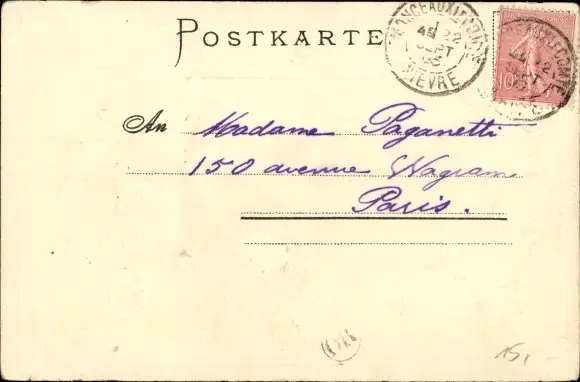 POSTKARTE
MONCEAUX LE COMTE
NIEVRE
10
An Madame Paganetti
150 avenue Wagram
Paris.
15,